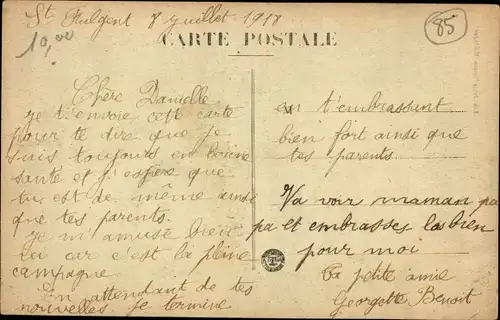 St Fulgent 8 juillet 1918
85
10,00
CARTE POSTALE
Chère Danielle
Je t'envoie cette carte
pour te dire que je
suis toujours en bonne
santé et j'espère que
tu est de même ainsi
que tes parents.
Je m'amuse bien
ici car c'est la pleine
campagne
En attendant de tes
nouvelles je termine
en t'embrassent
bien fort ainsi que
tes parents.
Va voir maman, pa
pa et embrasses les bien
pour moi
Ta petite amie
Georgette Benoit